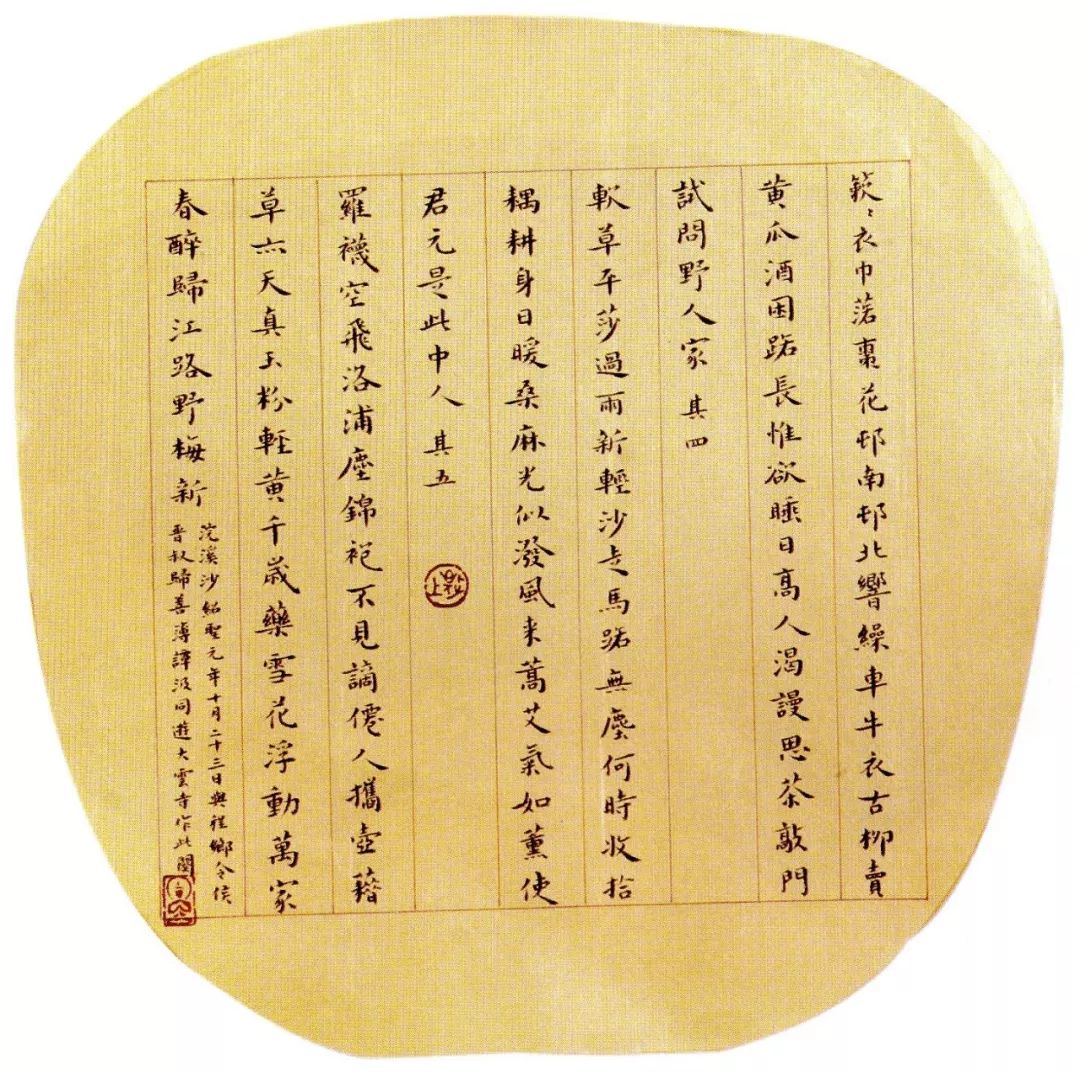 簌〻衣巾落棗花邨南邨北響繰車牛衣古柳賣
黄瓜酒困路長惟欲睡日高人渴謾思茶敲門
試問野人家 其四
軟草平莎過雨新輕沙走馬路無塵何時收拾
耦耕身日暖桑麻光似潑風来蒿艾氣如薰使
君元是此中人 其五
羅襪空飛洛浦塵錦袍不見謫僊人攜壺藉
草亦天真玉粉輕黄千歲藥雪花浮動萬家
春醉歸江路野梅新
浣溪沙紹聖元年十月二十三日與程鄉令侯
晋叔歸善簿譚汲同遊大雲寺作此闋